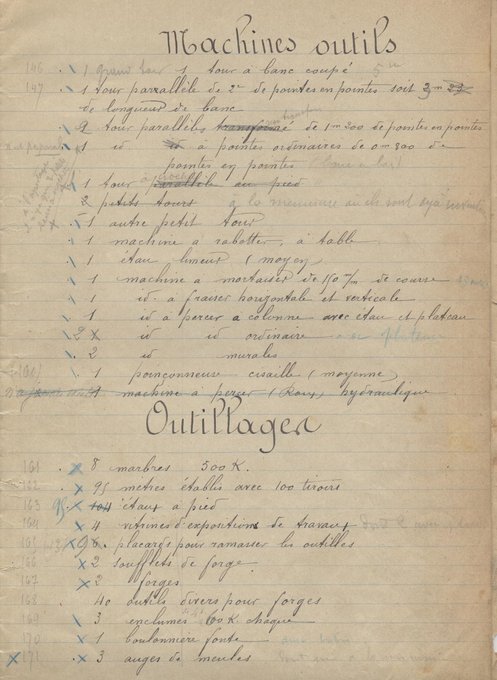 Machines outils
146 1 grand tour 1 tour a banc coupé 5 m
147 1 tour parralèle de 2m de pointes en pointes soit 3m 25
de longueur de banc
2 tour parallèles transformé de 1m 200 de pointes en pointes
1 id id a pointes ordinaires de 0m 800 de
pointes en pointes
1 tour parallèle au pied
2 petits tours à la menuiserie où ils sont déjà
1 autre petit tour
1 machine a rabotter, à table
1 étau limeur (moyen)
1 machine a mortaiser de 150 m/m de course
1 id. a fraiser horizontale et verticale
1 id a percer a colonne avec étau et plateau
2 x id id ordinaire
2 id murales
1 poinçonneuse cisaille (moyenne)
1 machine à percer (Roux) hydraulique
Outillages
161 x 8 marbres 500 K.
162 x 95 mètres établis avec 100 tiroirs
163 95 x 104 étaux a pied
164 x 4 vitrines d'expositions de travaux
165 x 98 placards pour ramasser les outilles
166 x 2 soufflets de forge
167 x 2 forges
168 40 outils divers pour forges
169 3 enclumes 100 K. chaque
170 1 boulonniere fonte
x 171 x 3 auges de meules